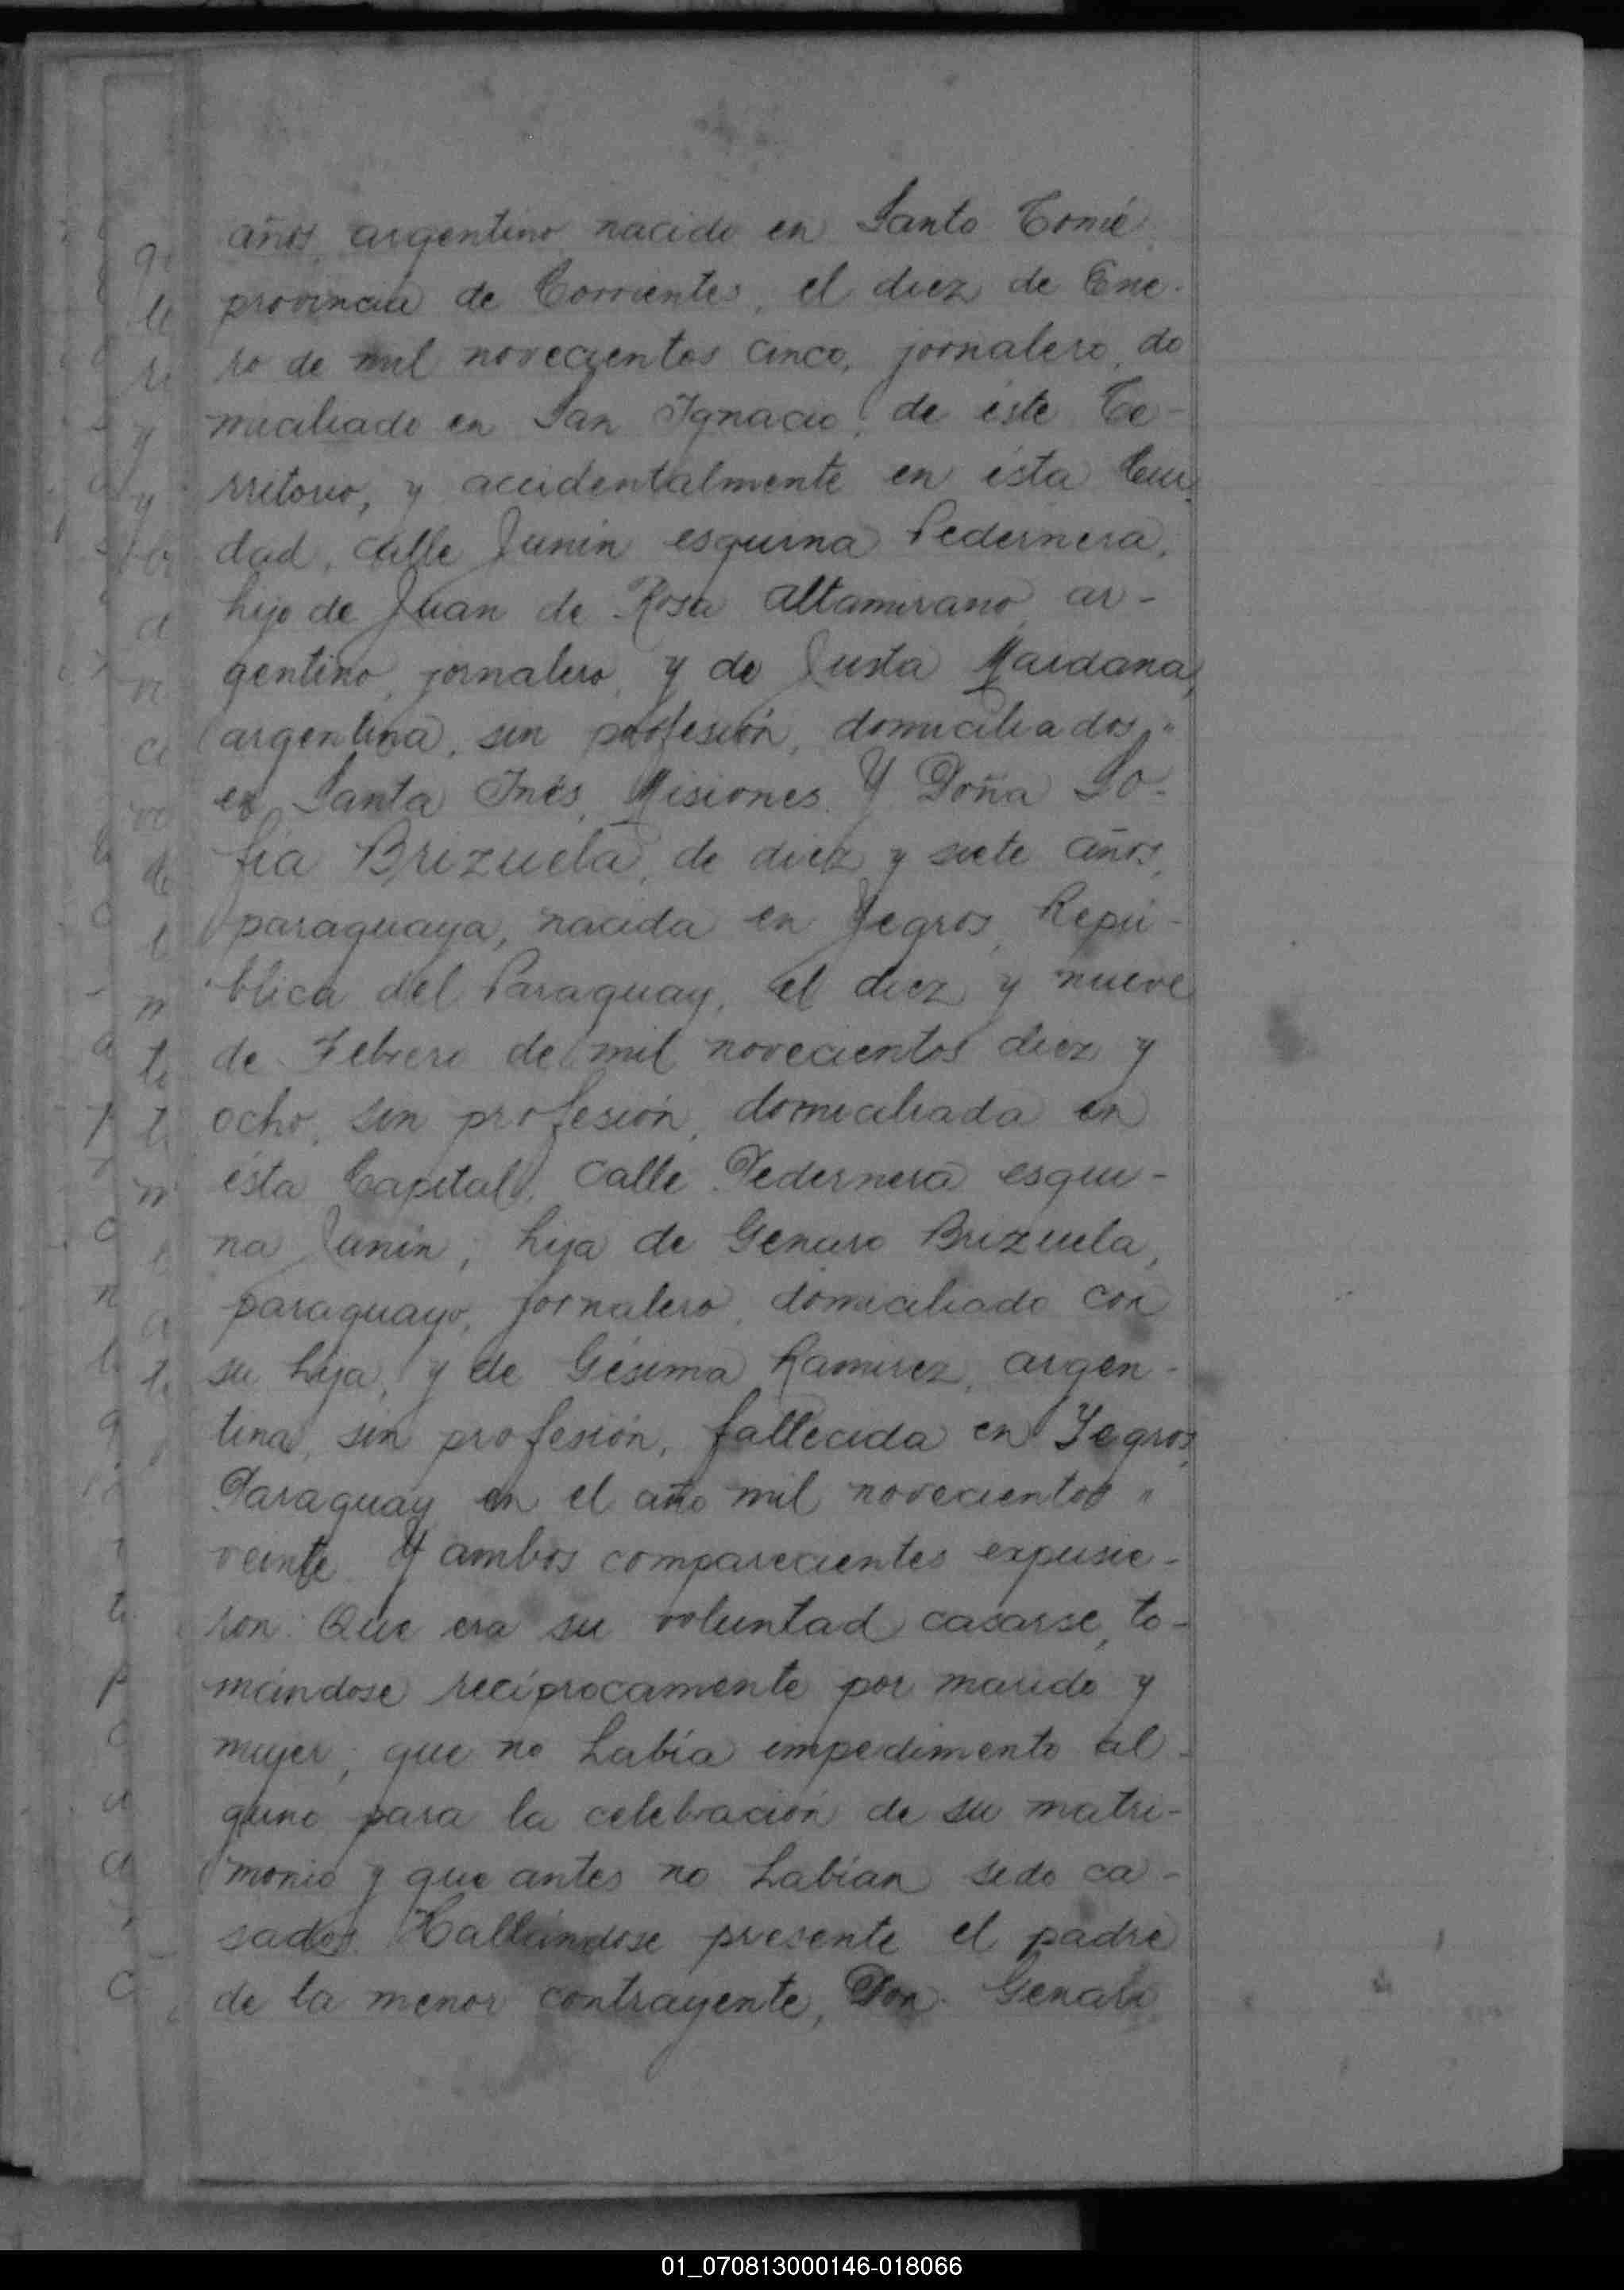 años, argentino, nacido en Santo Tomé,
provincia de Corrientes, el diez de Ene-
ro de mil novecientos cinco, jornalero, do
miciliado en San Ignacio, de éste Te-
rritorio, y accidentalmente en ésta Ciu-
dad, calle Junín esquina Pedernera,
hijo de Juan de Rosa Altamirano, ar-
gentino, jornalero, y de Justa Maidana,
argentina, sin profesión, domiciliados "
en Santa Inés, Misiones. Y Doña So-
fía Brizuela, de diez y siete años,
paraguaya, nacida en Yegros, Repú-
blica del Paraguay, el diez y nueve
de Febrero de mil novecientos diez y
ocho, sin profesión, domiciliada en
ésta Capital, calle Pedernera esqui-
na Junín, hija de Genaro Brizuela,
paraguayo, jornalero, domiciliado con
su hija, y de Gésima Ramirez, argen-
tina, sin profesión, fallecida en Yegros,
Paraguay en el año mil novecientos "
veinte. Y ambos comparecientes expusie-
ron: Que era su voluntad casarse, to-
mándose recíprocamente por marido y
mujer, que no había impedimento al-
guno para la celebración de su matri-
monio y que antes no habían sido ca-
sados. Hallándose presente el padre
de la menor contrayente, Don Genaro
01_070813000146-018066